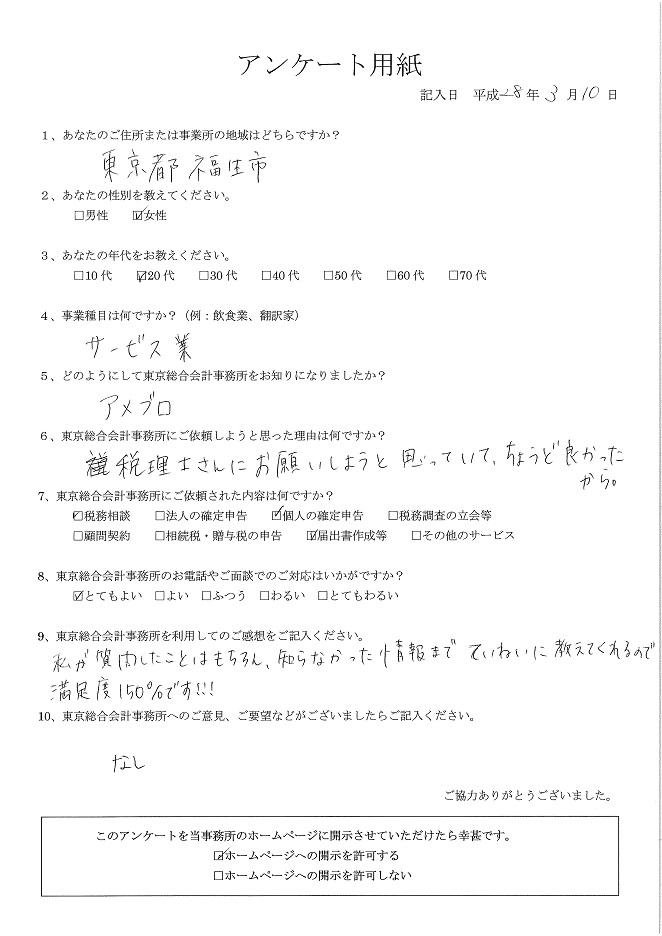 アンケート用紙
記入日 平成28年3月10日
1、あなたのご住所または事業所の地域はどちらですか？
東京都福生市
2、あなたの性別を教えてください。
□男性 ☑女性
3、あなたの年代をお教えください。
□10代 ☑20代 □30代 □40代 □50代 □60代 □70代
4、事業種目は何ですか？（例：飲食業、翻訳家）
サービス業
5、どのようにして東京総合会計事務所をお知りになりましたか？
アメブロ
6、東京総合会計事務所にご依頼しようと思った理由は何ですか？
税理士さんにお願いしようと思っていて、ちょうど良かった
から。
7、東京総合会計事務所にご依頼された内容は何ですか？
☑税務相談 □法人の確定申告 ☑個人の確定申告 □税務調査の立会等
□顧問契約 □相続税・贈与税の申告 ☑届出書作成等 □その他のサービス
8、東京総合会計事務所のお電話やご面談でのご対応はいかがですか？
☑とてもよい □よい □ふつう □わるい □とてもわるい
9、東京総合会計事務所を利用してのご感想をご記入ください。
私が質問したことはもちろん、知らなかった情報までていねいに教えてくれるので
満足度150%です!!!
10、東京総合会計事務所へのご意見、ご要望などがございましたらご記入ください。
なし
ご協力ありがとうございました。
このアンケートを当事務所のホームページに開示させていただけたら幸甚です。
☑ホームページへの開示を許可する
□ホームページへの開示を許可しない